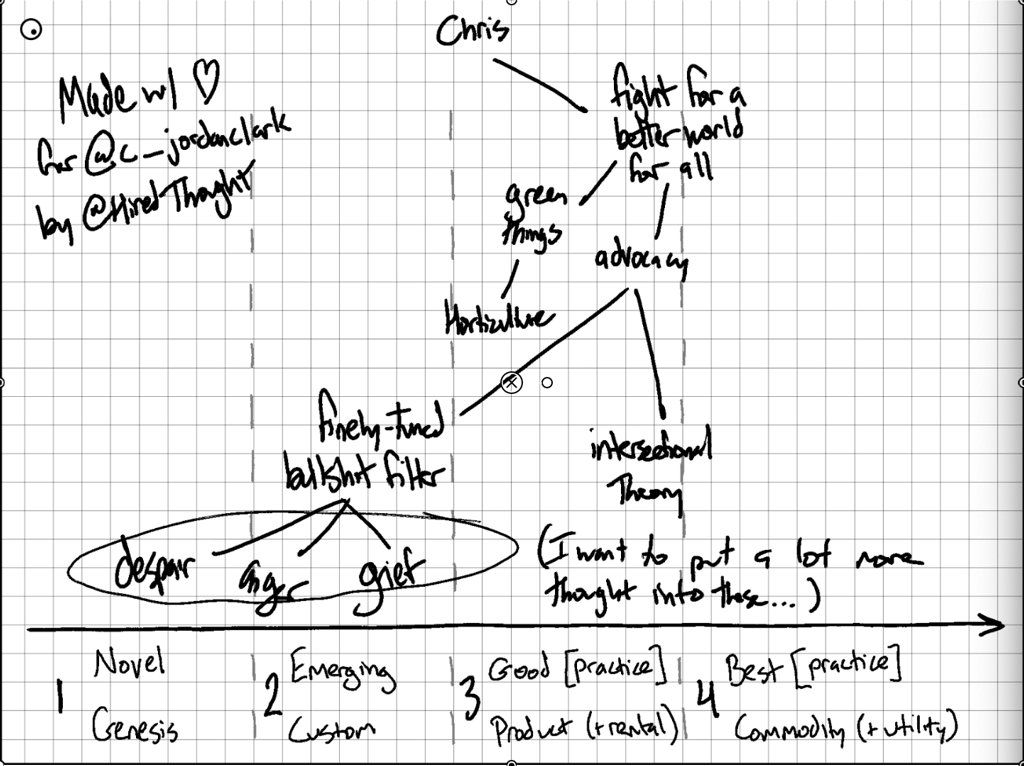 Chris
Made w/ ♡
for @c_jordanclark
by @HiredThought
fight for a
better world
for all
green
things
advocacy
Horticulture
finely-tuned
bullshit filter
intersectional
Theory
despair
anger
grief
(I want to put a lot more
thought into these...)
1
Novel
Genesis
2
Emerging
Custom
3
Good [practice]
Product (+rental)
4
Best [practice]
Commodity (+utility)